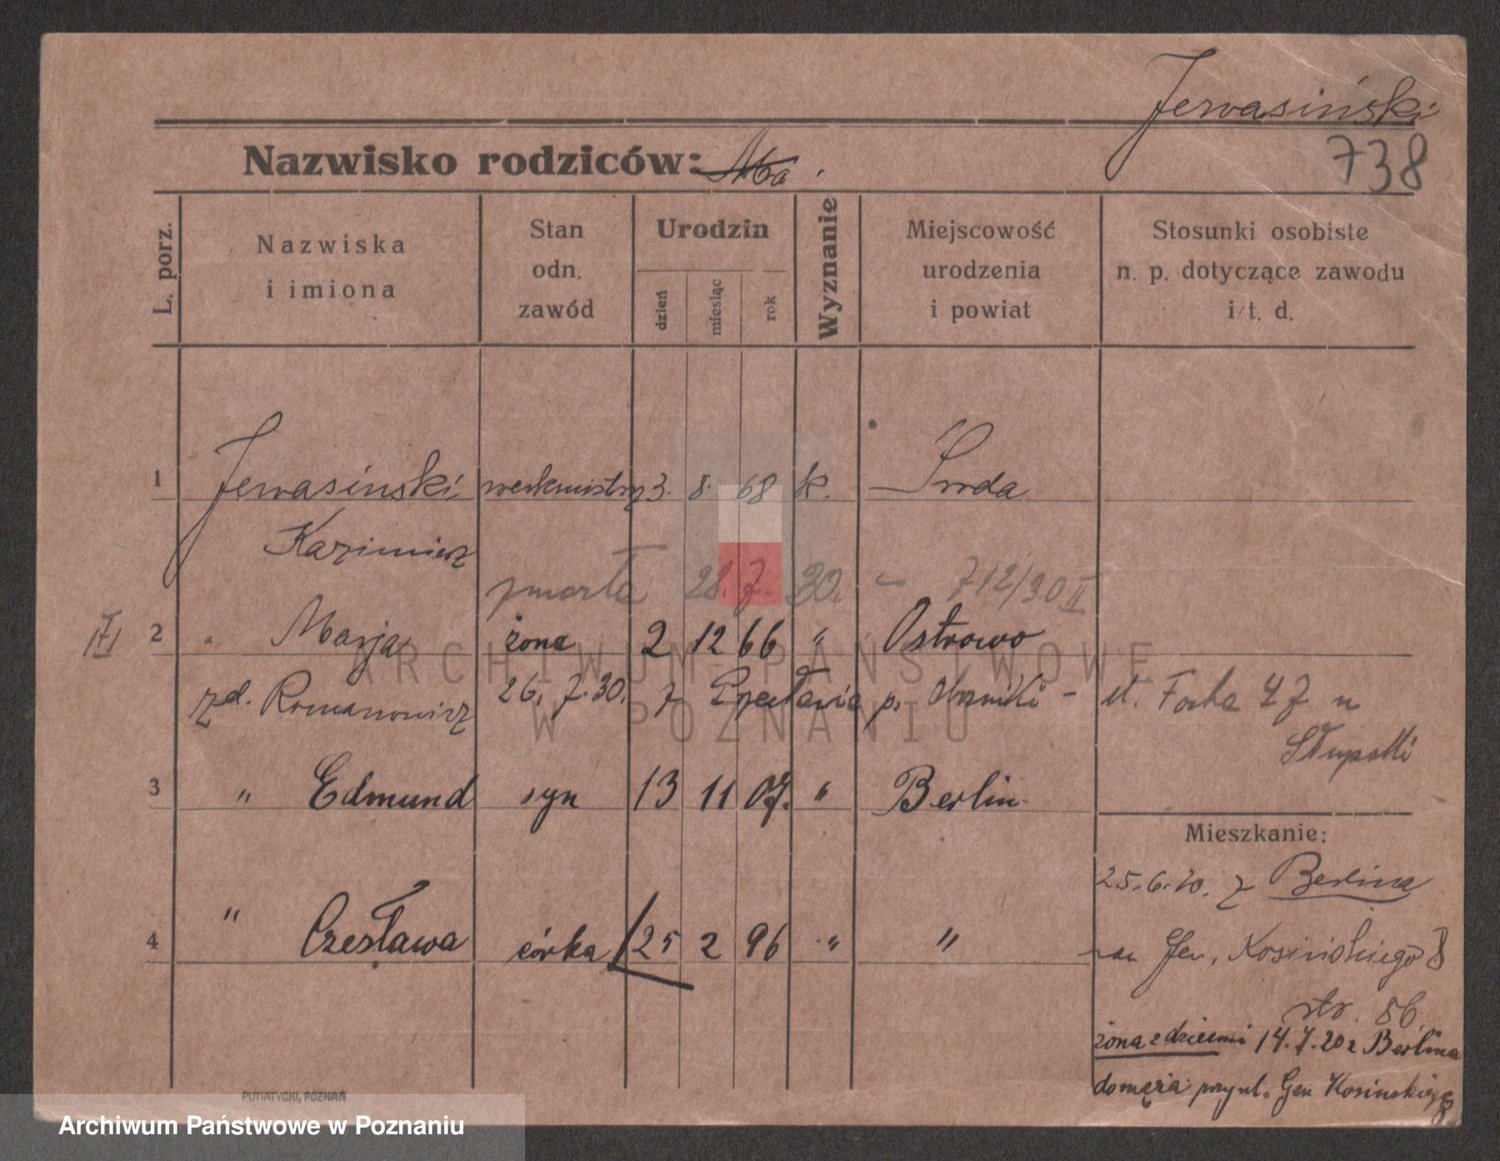 Jerwasiński
738
Nazwisko rodziców:
L. porz.
Nazwiska
i imiona
Stan
odn.
zawód
Urodzin
dzień
miesiąc
rok
Wyznanie
Miejscowość
urodzenia
i powiat
Stosunki osobiste
n. p. dotyczące zawodu
i t. d.
1 Jerwasiński werkmistrz 3. 8. 68 k. Środa
Kazimierz
zmarła 28. 7. 30. – 712/30 II
2 " Marja żona 2 12 66 " Ostrowo
zd. Romanowicz 26. 7. 30. z p. Oborniki – ul. Focha 47 u
Słupski
3 " Edmund syn 13 11 07. " Berlin
Mieszkanie:
25.6.20. z Berlina
4 " Czesława córka 25 2 96 " "
na Gen. Kosińskiego 8
str. 86
żona z dziećmi 14.7.20 z Berlina
do męża przy ul. Gen Kosińskiego
8
PUTIATYCKI, POZNAŃ
ARCHIWUM PAŃSTWOWE
W POZNANIU
Archiwum Państwowe w Poznaniu